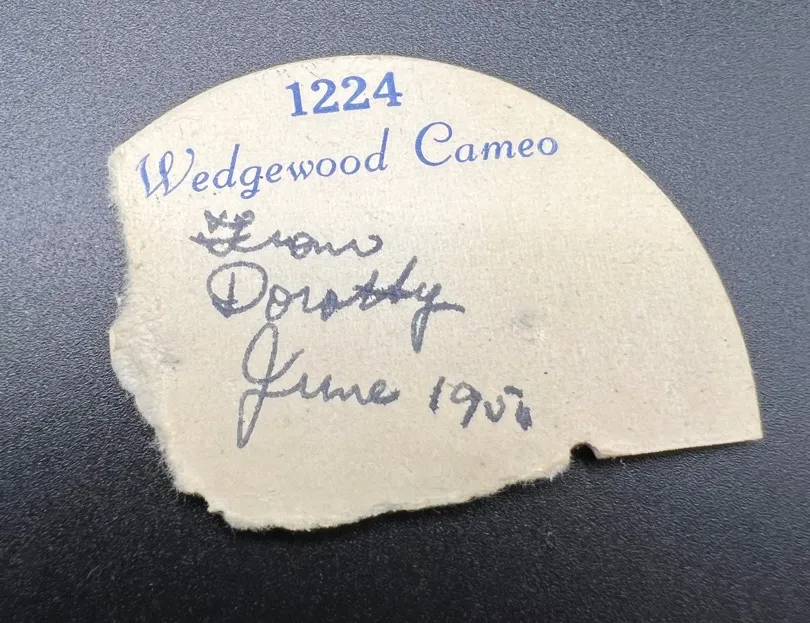 1224
Wedgewood Cameo
From
Dorothy
June